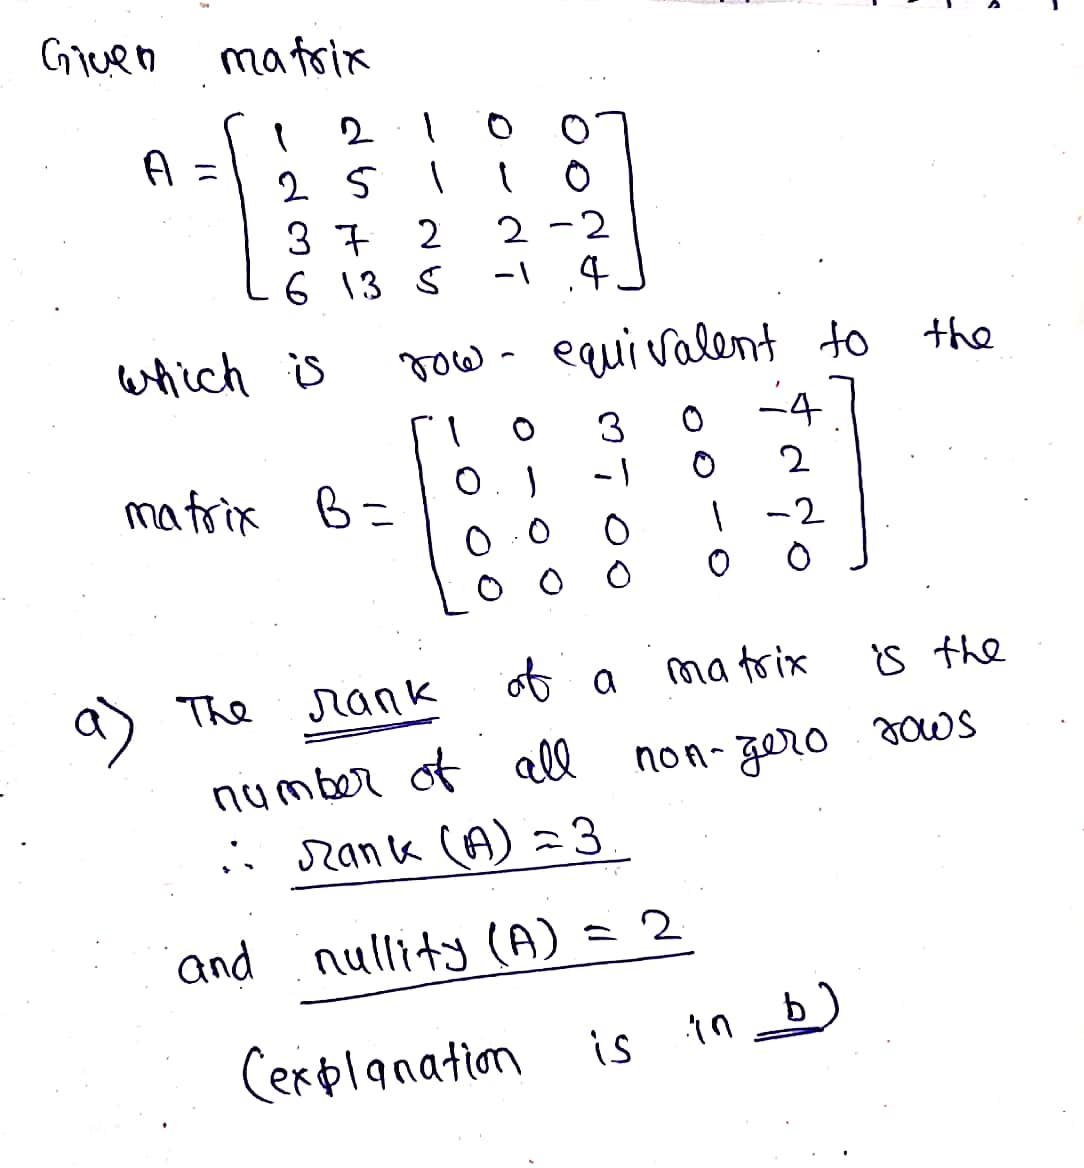 Given matrix
A = [ 1 2 1 0 0
2 5 1 1 0
3 7 2 2 -2
6 13 5 -1 4 ]
which is row-equivalent to the
matrix B = [ 1 0 3 0 -4
0 1 -1 0 2
0 0 0 1 -2
0 0 0 0 0 ]
a) The rank of a matrix is the
number of all non-zero rows
∴ rank (A) = 3
and nullity (A) = 2
(explanation is in b)